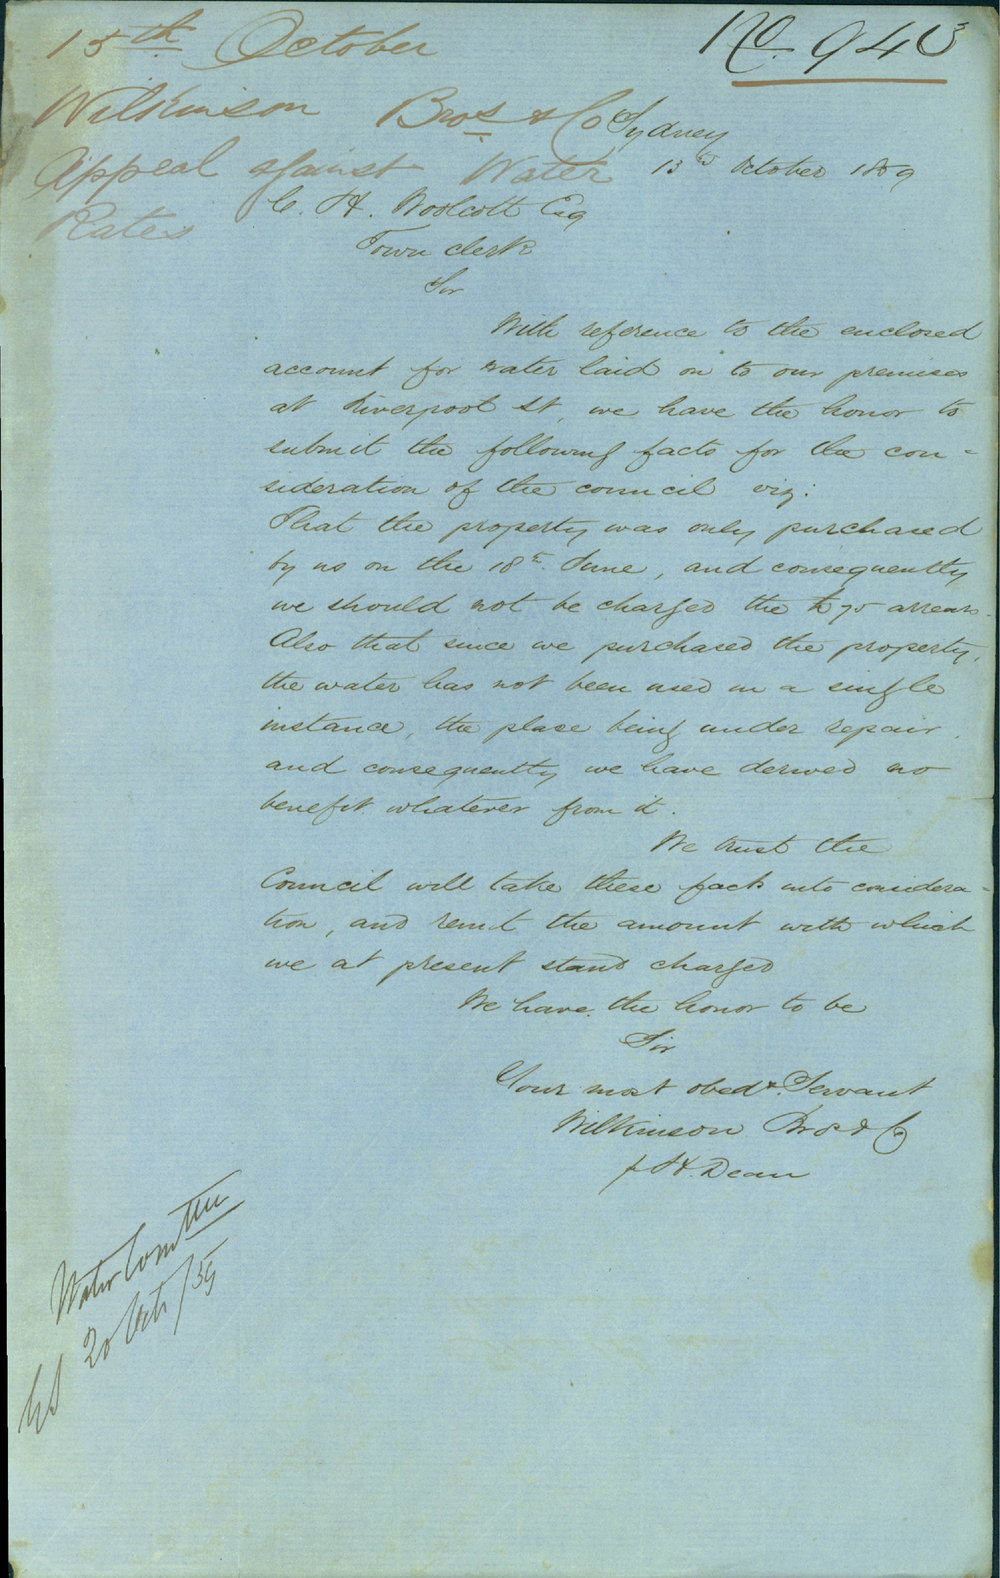 15th October
No. 943
Wilkinson Bros & Co
Appeal against Water
Rates
Sydney
13th October 1859
C. H. Woolcott Esq
Town Clerk
Sir
With reference to the enclosed
account for water laid on to our premises
at Liverpool St, we have the honor to
submit the following facts for the con=
sideration of the council viz:
That the property was only purchased
by us on the 18th June, and consequently
we should not be charged the 75 arrears.
Also that since we purchased the property,
the water has not been used in a single
instance, the place being under repair,
and consequently we have derived no
benefit whatever from it.
We trust the
Council will take these facts into considera=
tion, and remit the amount with which
we at present stand charged
We have the honor to be
Sir
Your most obedt. Servant
Wilkinson Bros & Co
p H. Dean
Water Comttee
20 Oct/59